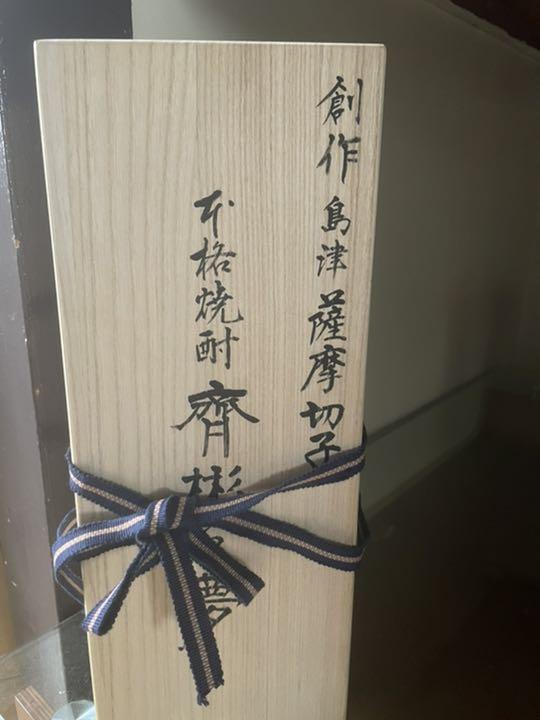 創作 島津 薩摩切子
本格焼酎 齊彬 夢